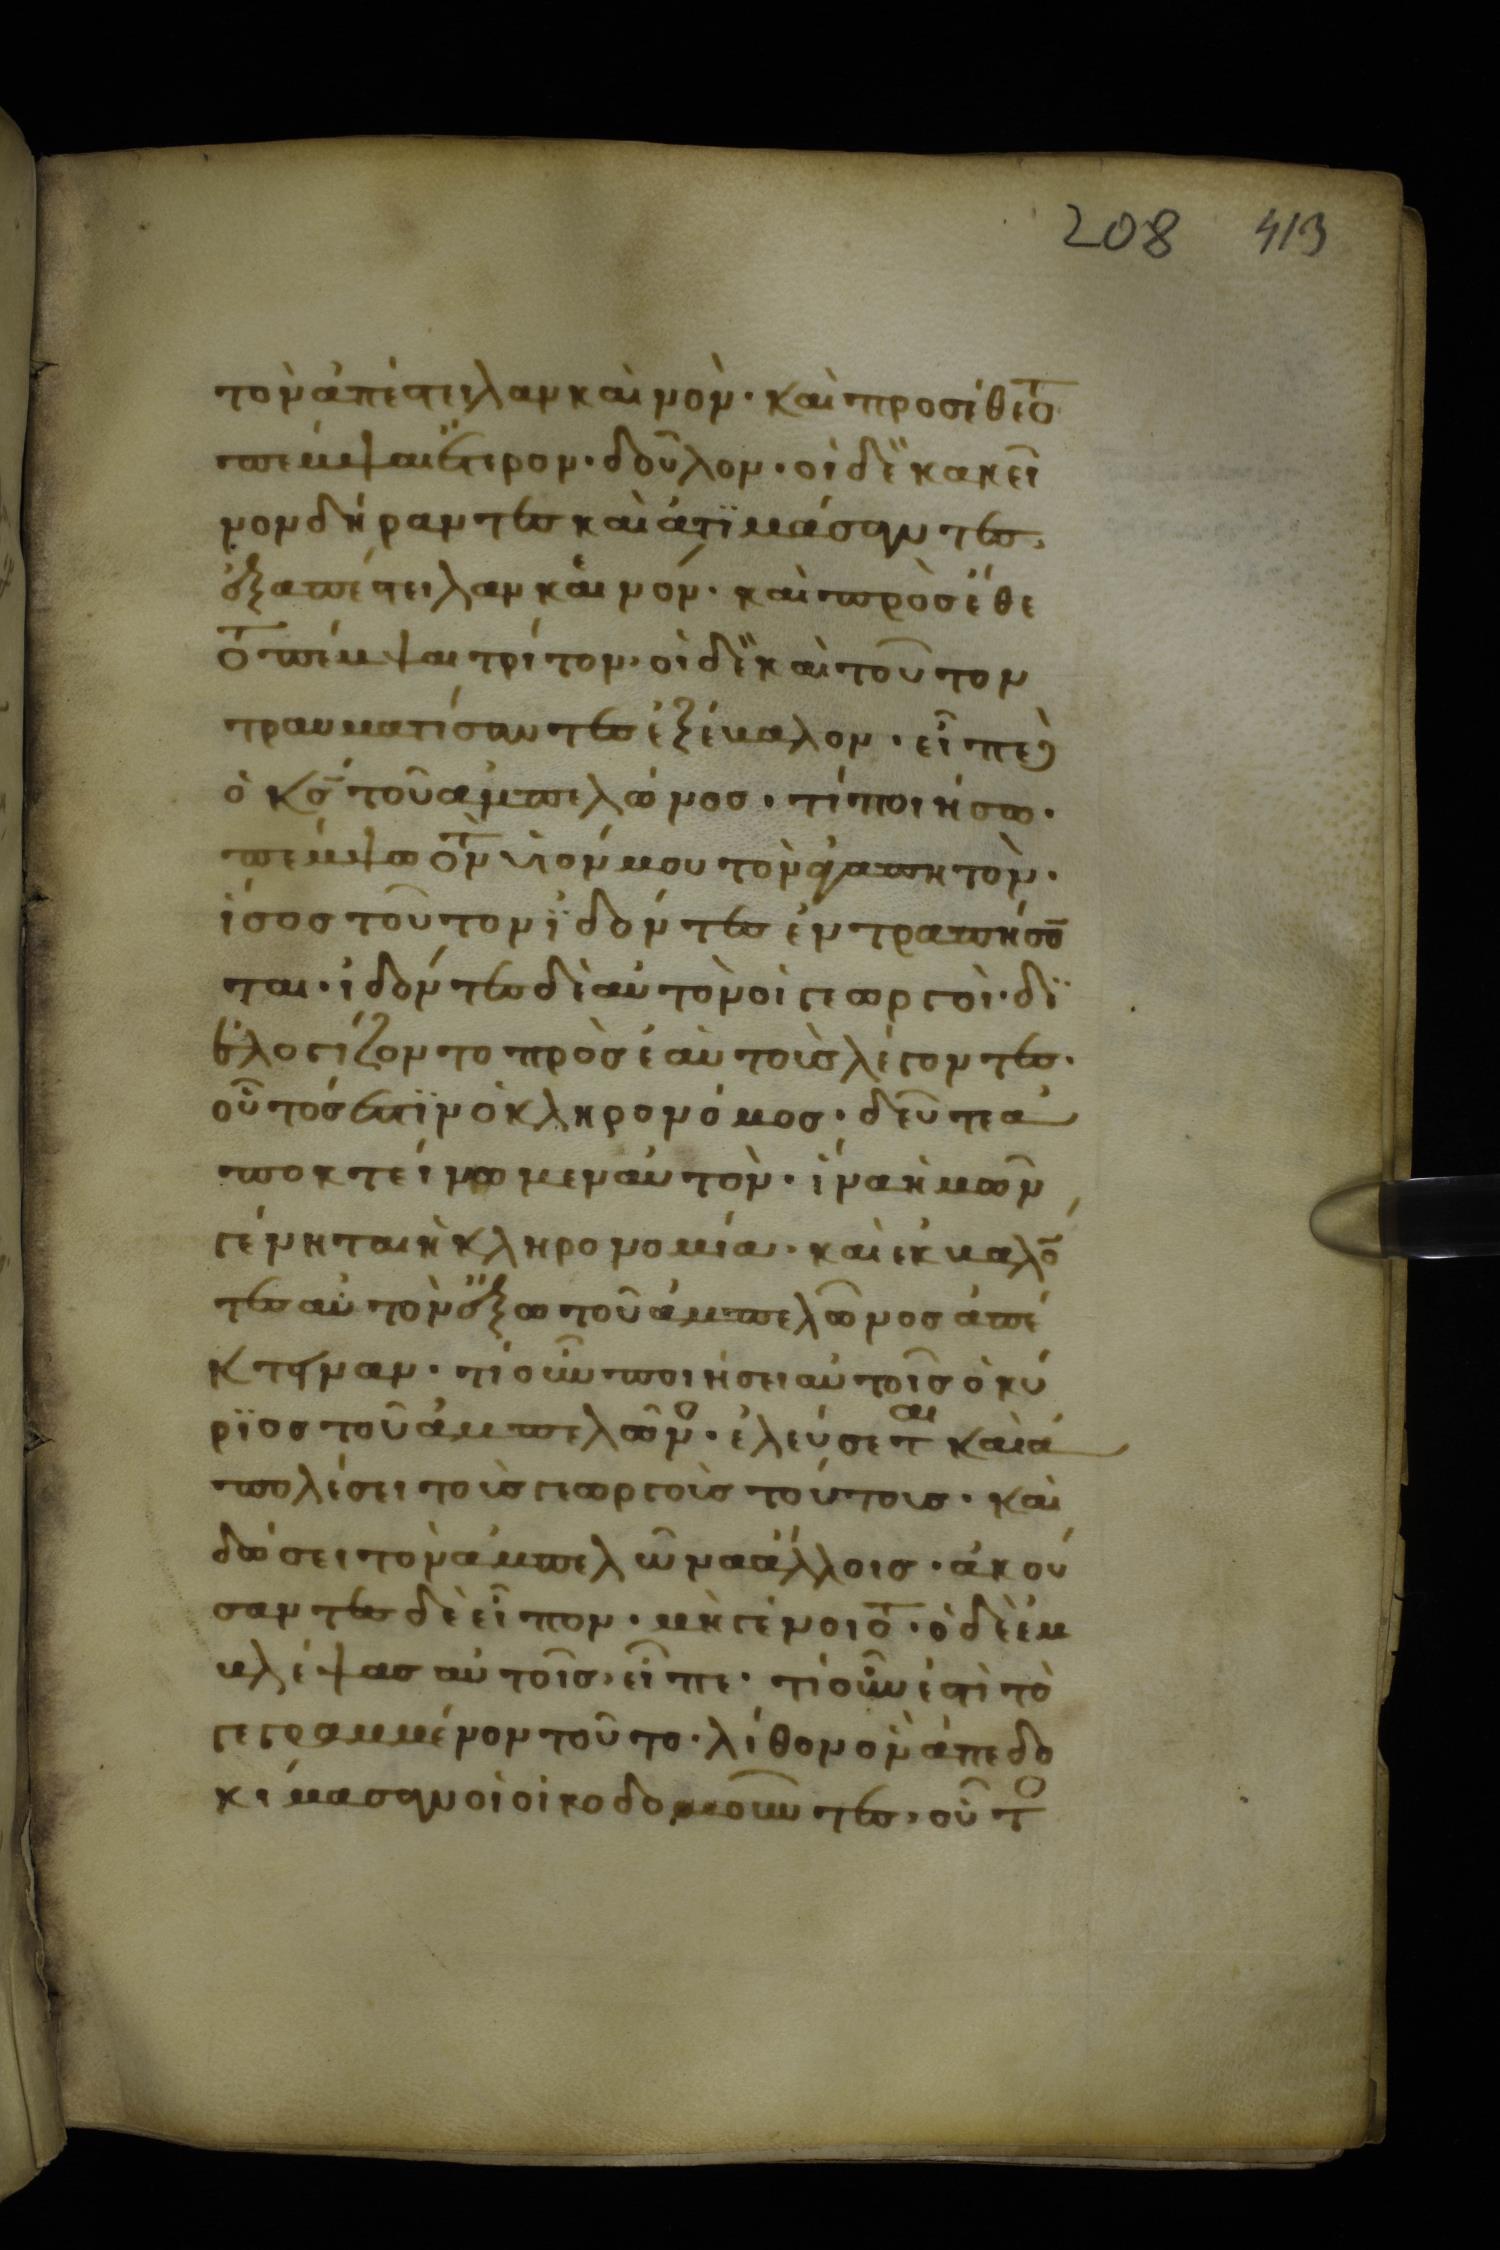 208 413
τὸν ἀπέστειλαν καινὸν· καὶ προσέθετο
πέμψαι ἕτερον· δοῦλον· οἱ δὲ κακεῖ
νον δήραντες καὶ ἀτϊμάσαντες,
ἐξαπέστειλαν καινόν· καὶ πρὸσέθε
το πέμψαι τρίτον· οἱ δὲ καὶ τοῦτον
τραυματίσαντες ἐξέβαλον· εἶπεν
ὁ κς τοῦ ἀμπελώνος· τί ποιήσω·
πέμψω τὸν υἱόν μου τὸν ἀγαπητὸν·
ἴσος τοῦτον ϊδόντες ἐντραπήσον
ται· ἰδόντες δὲ αὐτὸν οἱ γεωργοὶ· δϊ
ελογίζοντο πρὸς ἑαυτοὺς λέγοντες·
οὗτός ἐστϊν ὁ κληρονόμος· δεῦτε ἀ
ποκτείνωμεν αὐτὸν· ἵνα ἡμῶν
γένηται ἡ κληρονομία· καὶ ἐκβαλόν
τες αὐτὸν ἔξω τοῦ ἀμπελῶνος ἀπέ
κτειναν· τί οὖν ποιήσει αὐτοῖς ὁ κύ
ρϊος τοῦ ἀμπελῶνο· ἐλεύσεται καὶ ἀ
πολέσει τοὺς γεωργοὺς τούτους· καὶ
δώσει τὸν ἀμπελῶνα ἄλλοις· ἀκού
σαντες δὲ εἶπον· μὴ γένοιτο· ὁ δὲ ἐμ
βλέψας αὐτοῖς, εἶπε· τί οὖν ἐστὶ τὸ
γεγραμμένον τοῦτο· λίθον ὃν ἀπεδο
κίμασαν οἱ οἰκοδομοῦντες, οὗτο